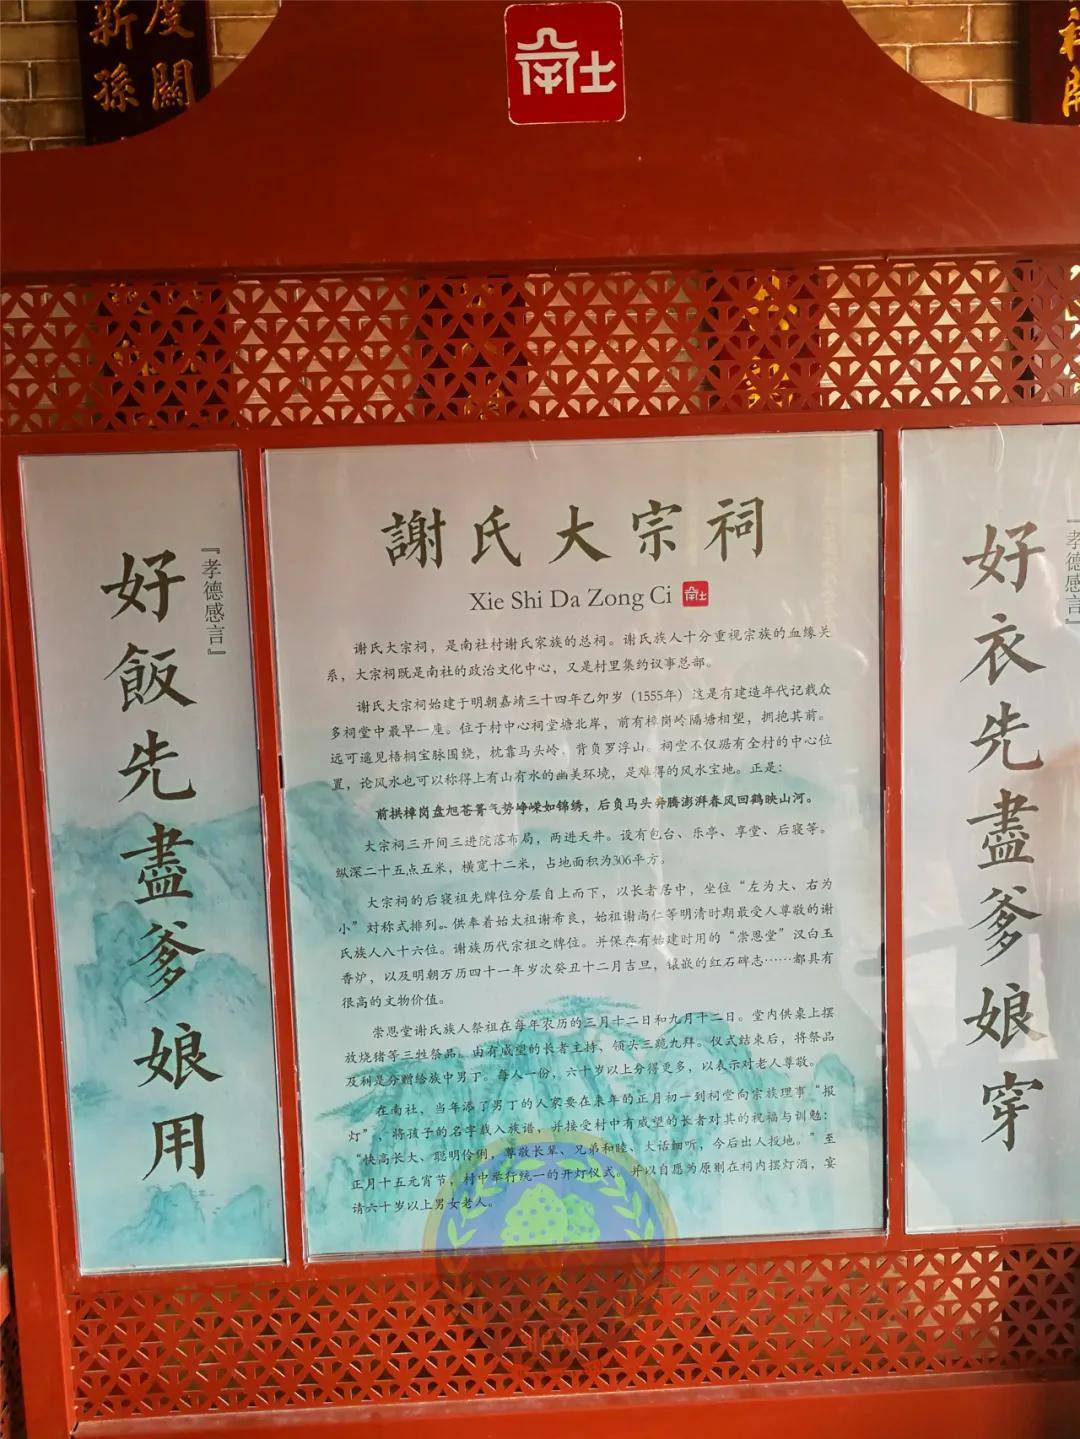 度閣
新孫
南社
謝氏大宗祠
Xie Shi Da Zong Ci
南社
谢氏大宗祠，是南社村谢氏家族的总祠。谢氏族人十分重视宗族的血缘关
系，大宗祠既是南社的政治文化中心，又是村里集约议事总部。
谢氏大宗祠始建于明朝嘉靖三十四年乙卯岁（1555年）这是有建造年代记载众
多祠堂中最早一座。位于村中心祠堂塘北岸，前有樟岗岭隔塘相望，拥抱其前。
远可遥见梧桐宝脉围绕，枕靠马头岭。背负罗浮山。祠堂不仅踞有全村的中心位
置，论风水也可以称得上有山有水的幽美环境，是难得的风水宝地。正是：
前拱樟岗盘旭苍霄气势峥嵘如锦绣，后负马头奔腾澎湃春风回鹤映山河。
大宗祠三开间三进院落布局，两进天井。设有包台、乐亭、享堂、后寝等。
纵深二十五点五米，横宽十二米，占地面积为306平方。
大宗祠的后寝祖先牌位分层自上而下，以长者居中，坐位“左为大、右为
小”对称式排列。供奉着始太祖谢希良，始祖谢尚仁等明清时期最受人尊敬的谢
氏族人八十六位。谢族历代宗祖之牌位。并保存有始建时用的“崇恩堂”汉白玉
香炉，以及明朝万历四十一年岁次癸丑十二月吉旦，镶嵌的红石碑志……都具有
很高的文物价值。
崇恩堂谢氏族人祭祖在每年农历的三月十二日和九月十二日。堂内供桌上摆
放烧猪等三牲祭品。由有威望的长者主持、领头三跪九拜。仪式结束后，将祭品
及利是分赠给族中男丁。每人一份，六十岁以上分得更多，以表示对老人尊敬。
在南社，当年添了男丁的人家要在来年的正月初一到祠堂向宗族理事“报
灯”，将孩子的名字载入族谱，并接受村中有威望的长者对其的祝福与训勉：
“快高长大、聪明伶俐，尊敬长辈、兄弟和睦、大话细听，今后出人投地。”至
正月十五元宵节，村中举行统一的开灯仪式。并以自愿为原则在祠内摆灯酒，宴
请六十岁以上男女老人。
『孝德感言』
好衣先盡爹娘穿
『孝德感言』
好飯先盡爹娘用